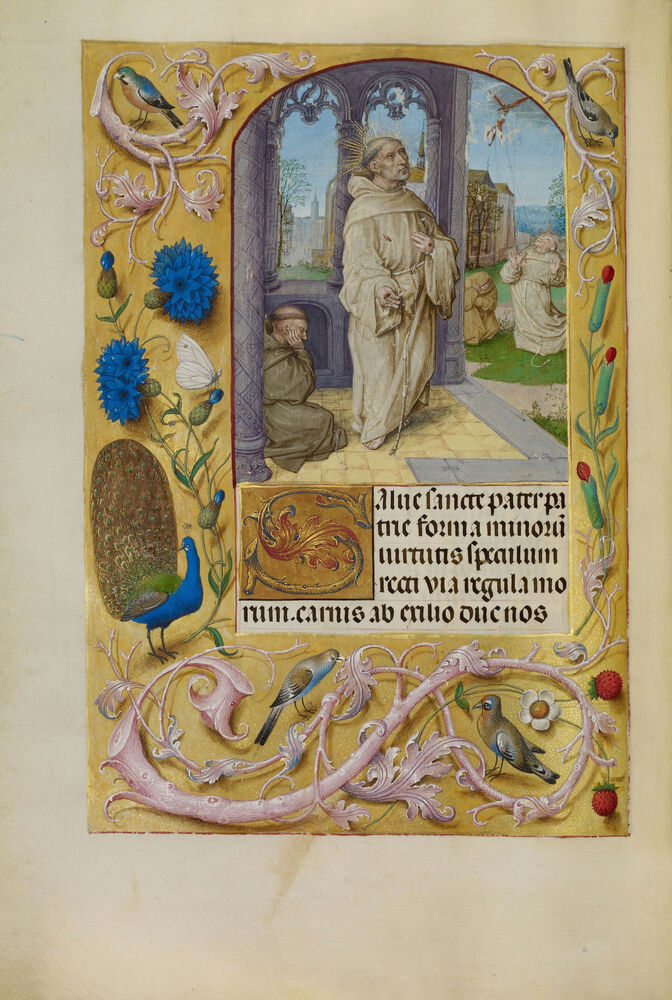 Salue sancte pater pa
trie forma minorū
uirtutis speculum
recti via regula mo
rum. carnis ab exilio duc nos